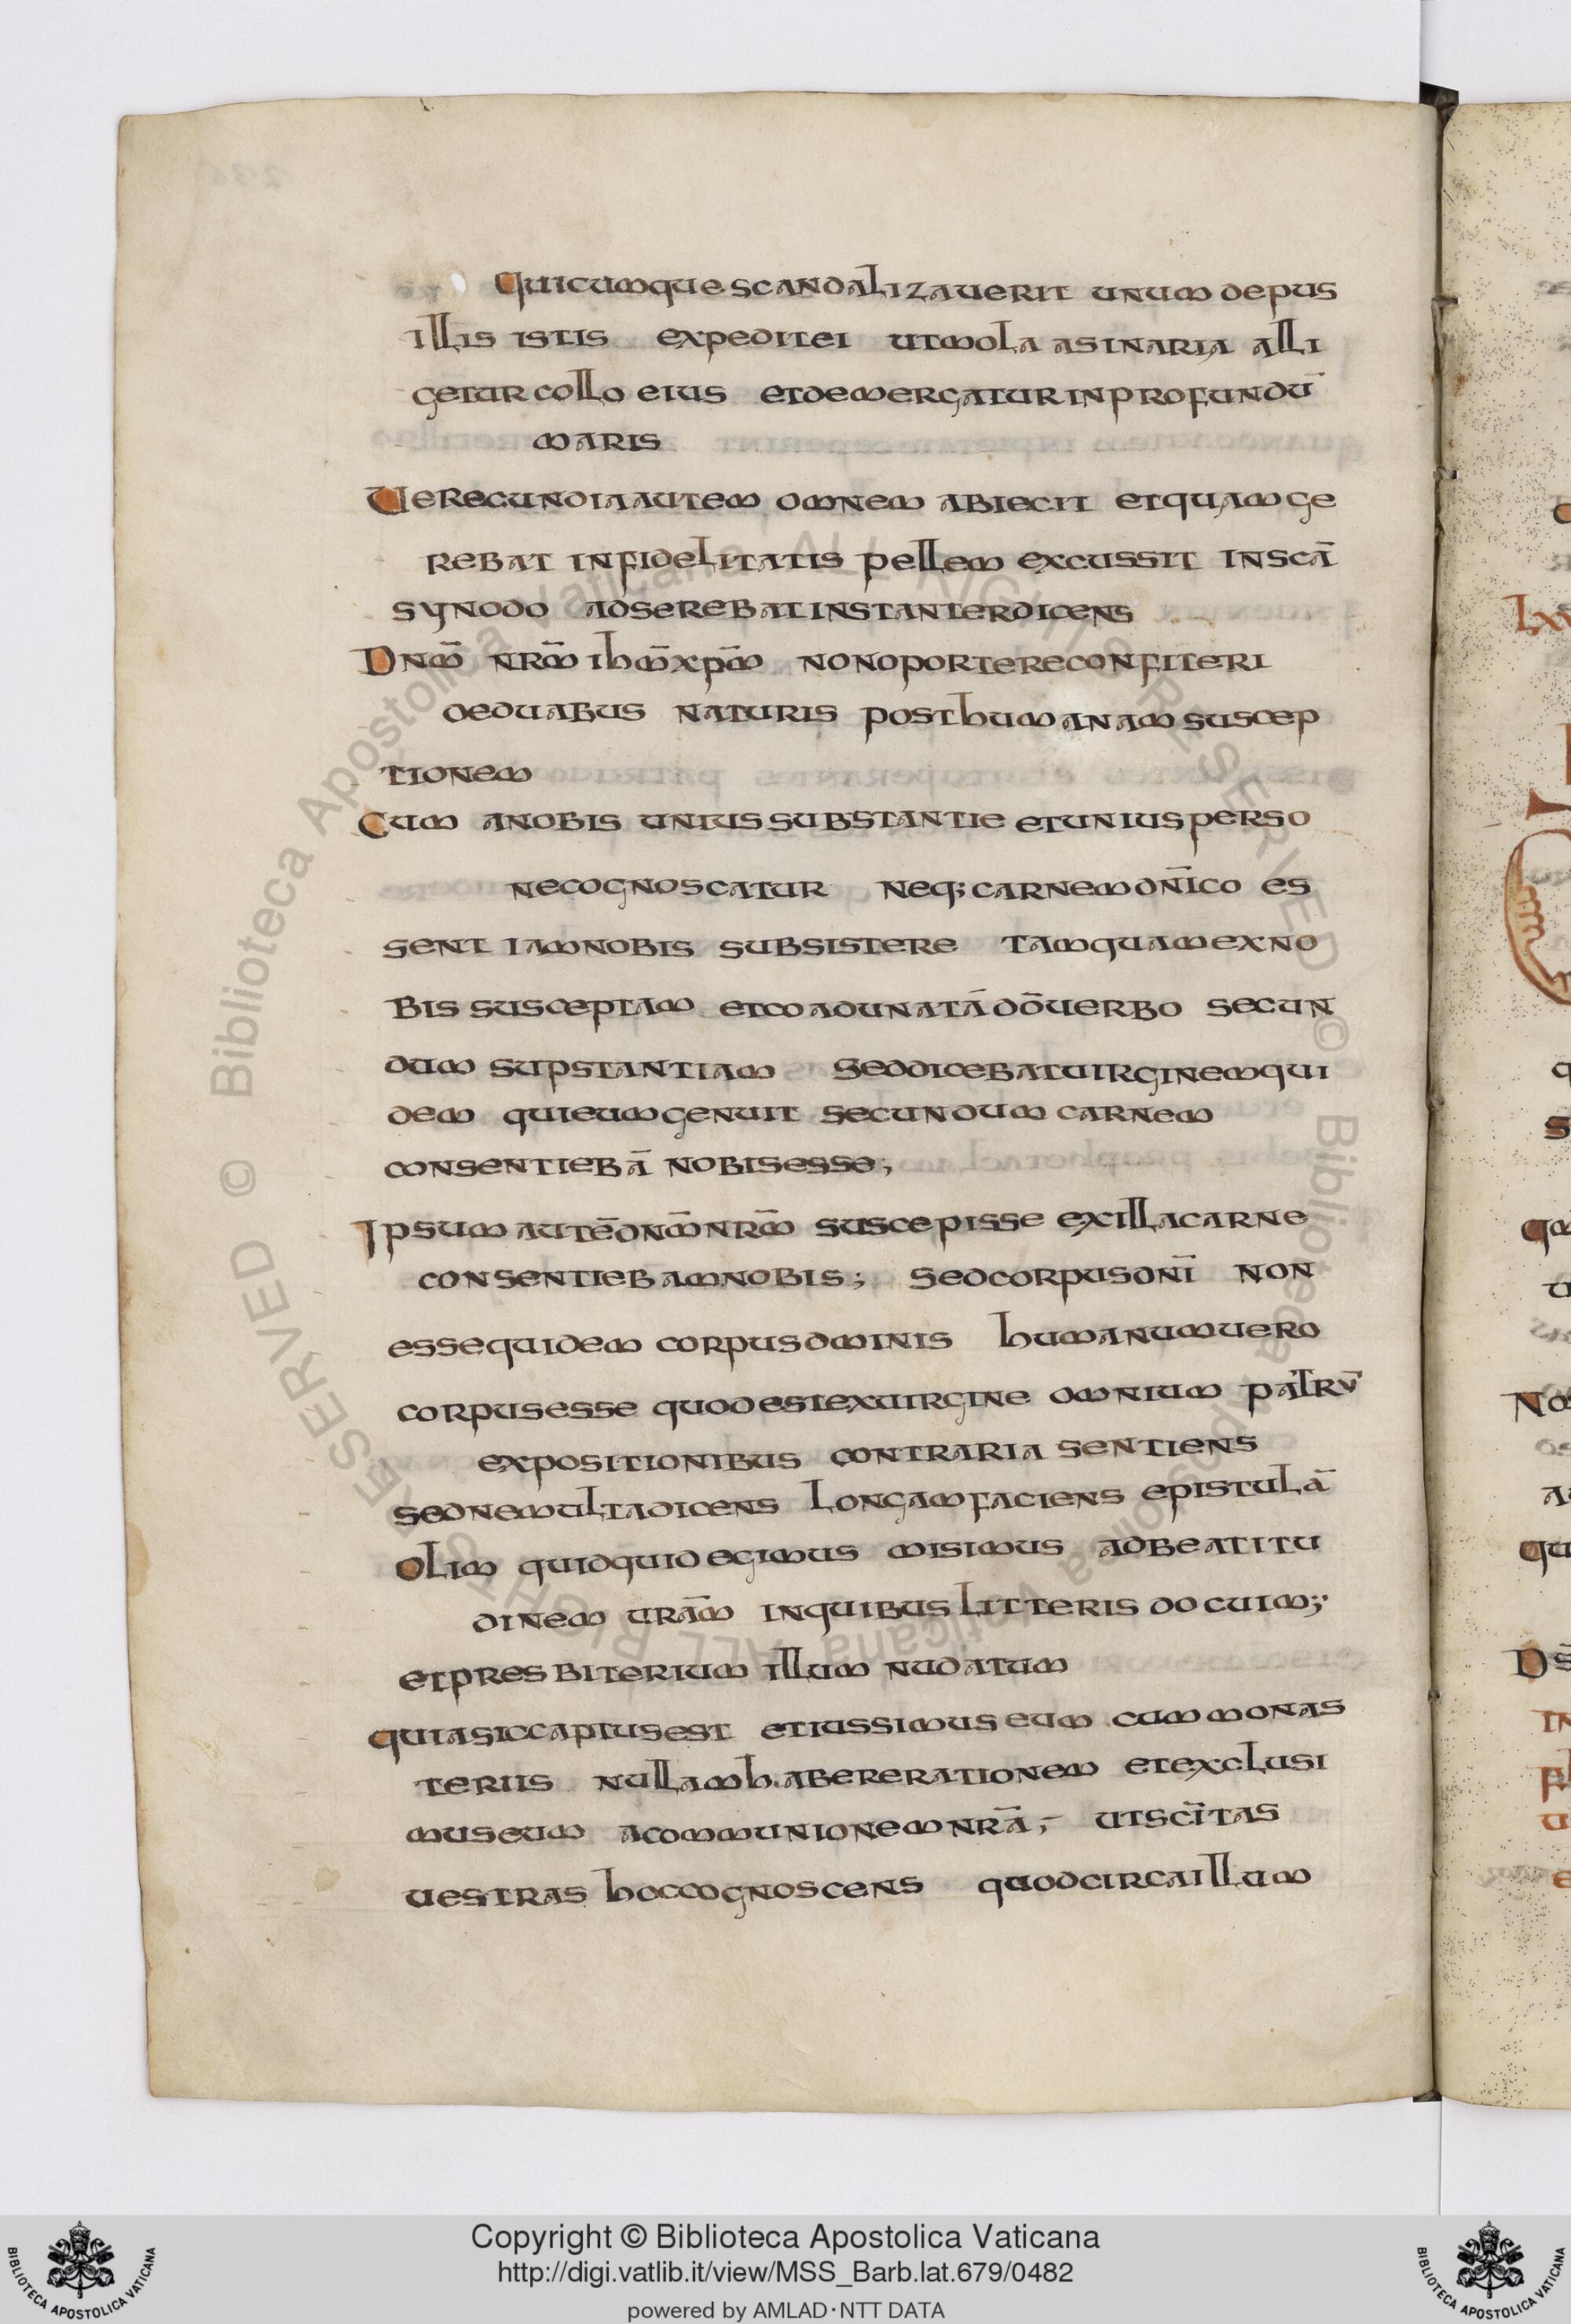 Quicumque scandalizauerit unum de pus
illis istis expedit ei ut mola asinaria alli
getur collo eius et demergatur in profundū
maris
Uerecundia autem omnem abiecit et quam ge
rebat infidelitatis pellem excussit in scā
synodo adserebat instanter dicens
Dnm̄ nrm̄ ihm̄ xpm̄ non oportere confiteri
de duabus naturis post humanam suscep
tionem
Cum a nobis unius substantie et unius perso
ne cognoscatur neq; carnem dnīco es
sent iam nobis subsistere tamquam ex no
bis susceptam et coadunatā dō uerbo secun
dum supstantiam Sed dicebat uirginem qui
dem qui eum genuit secundum carnem
consentiebā nobis esse;
Ipsum autē dnm̄ nrm̄ suscepisse ex illa carne
consentiebam nobis; Sed corpus dnī non
esse quidem corpus dminis humanum uero
corpus esse quod est ex uirgine omnium patrū
expositionibus contraria sentiens
sed ne multa dicens longam faciens epistulā
olim quidquid egimus misimus ad beatitu
dinem urām in quibus litteris docuim;
et presbiterium illum nudatum
quia sic captus est et iussimus eum cum monas
teriis nullam habere rationem et exclusi
mus eum a communionem nrā; ut scītas
uestras hoc cognoscens quod circa illum
Copyright © Biblioteca Apostolica Vaticana
http://digi.vatlib.it/view/MSS_Barb.lat.679/0482
powered by AMLAD·NTT DATA